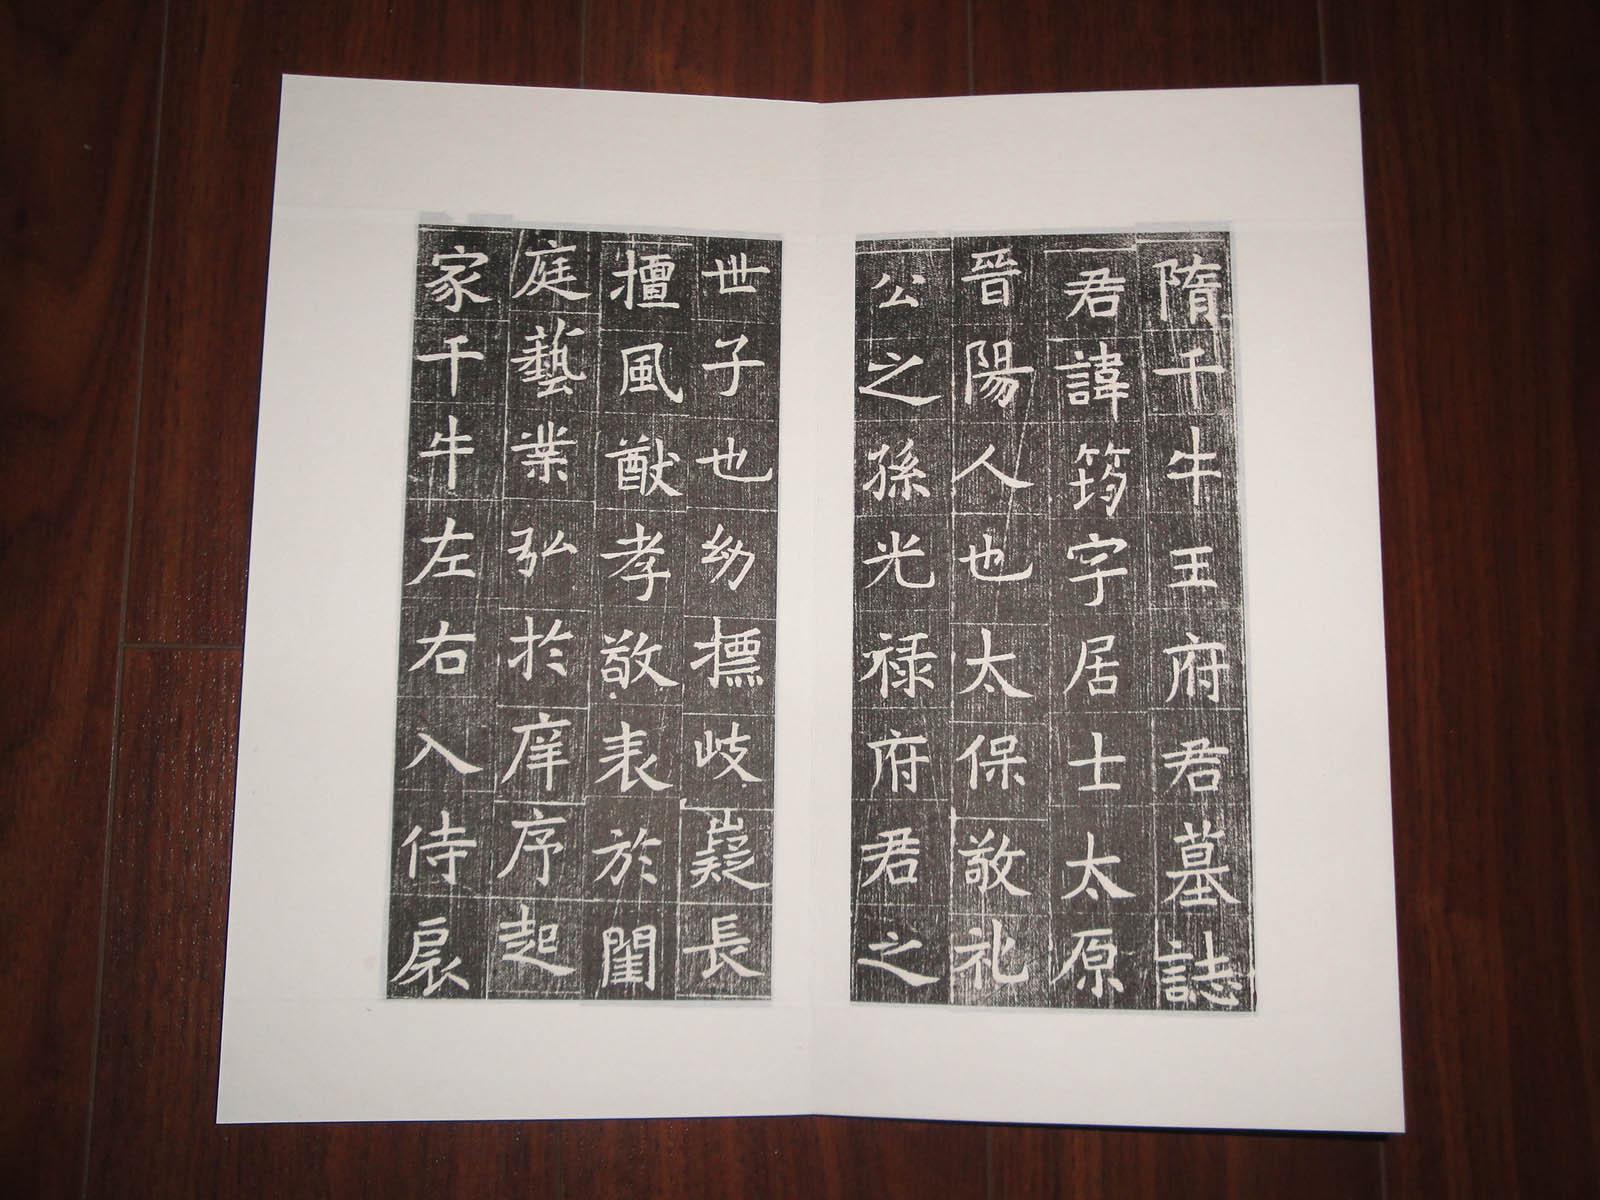 隋千牛王府君墓誌
君諱筠字居士太原
晉陽人也太保敬礼
公之孫光禄府君之
世子也幼摽岐嶷長
擅風猷孝敬表於閨
庭藝業弘於庠序起
家千牛左右入侍扆